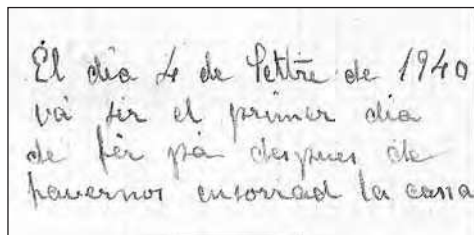 El dia 4 de Setbre de 1940
vá ser el primer dia
de fér pá despues de
havernos ensorrad la casa